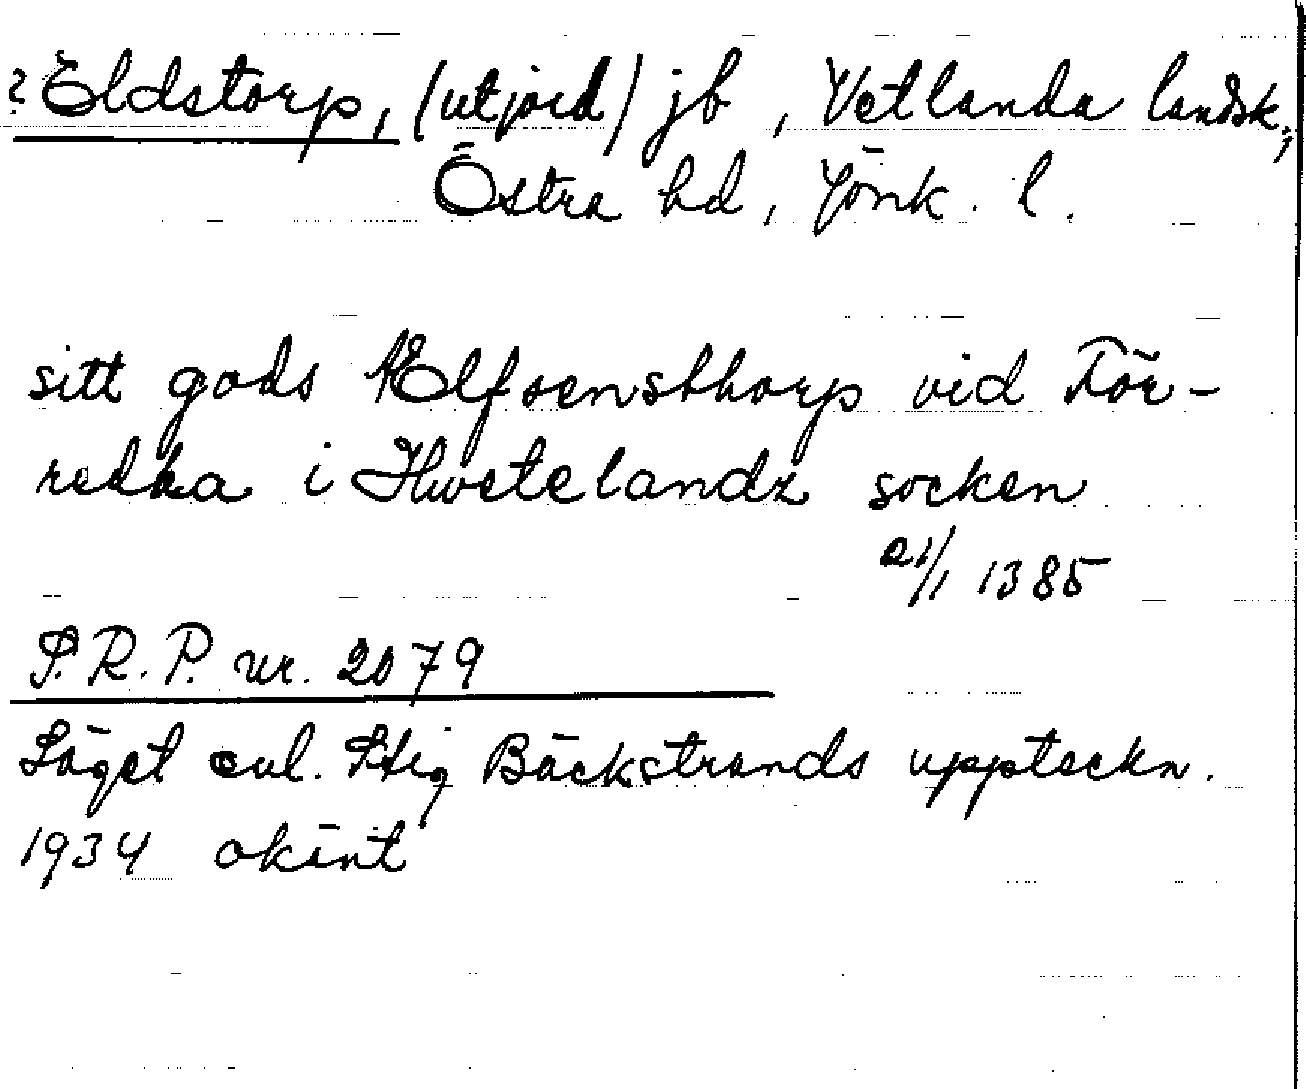 ? Eldstorp, (utjord) jb, Vetlanda landsk.,
Östra hd, Jönk. l.
sitt gods Elfsensthorp vid För-
redha i Hwetelandz socken
21/1 1385
S.R.P. nr. 2079
Läget enl. Stig Bäckstrands uppteckn.
1934 okänt